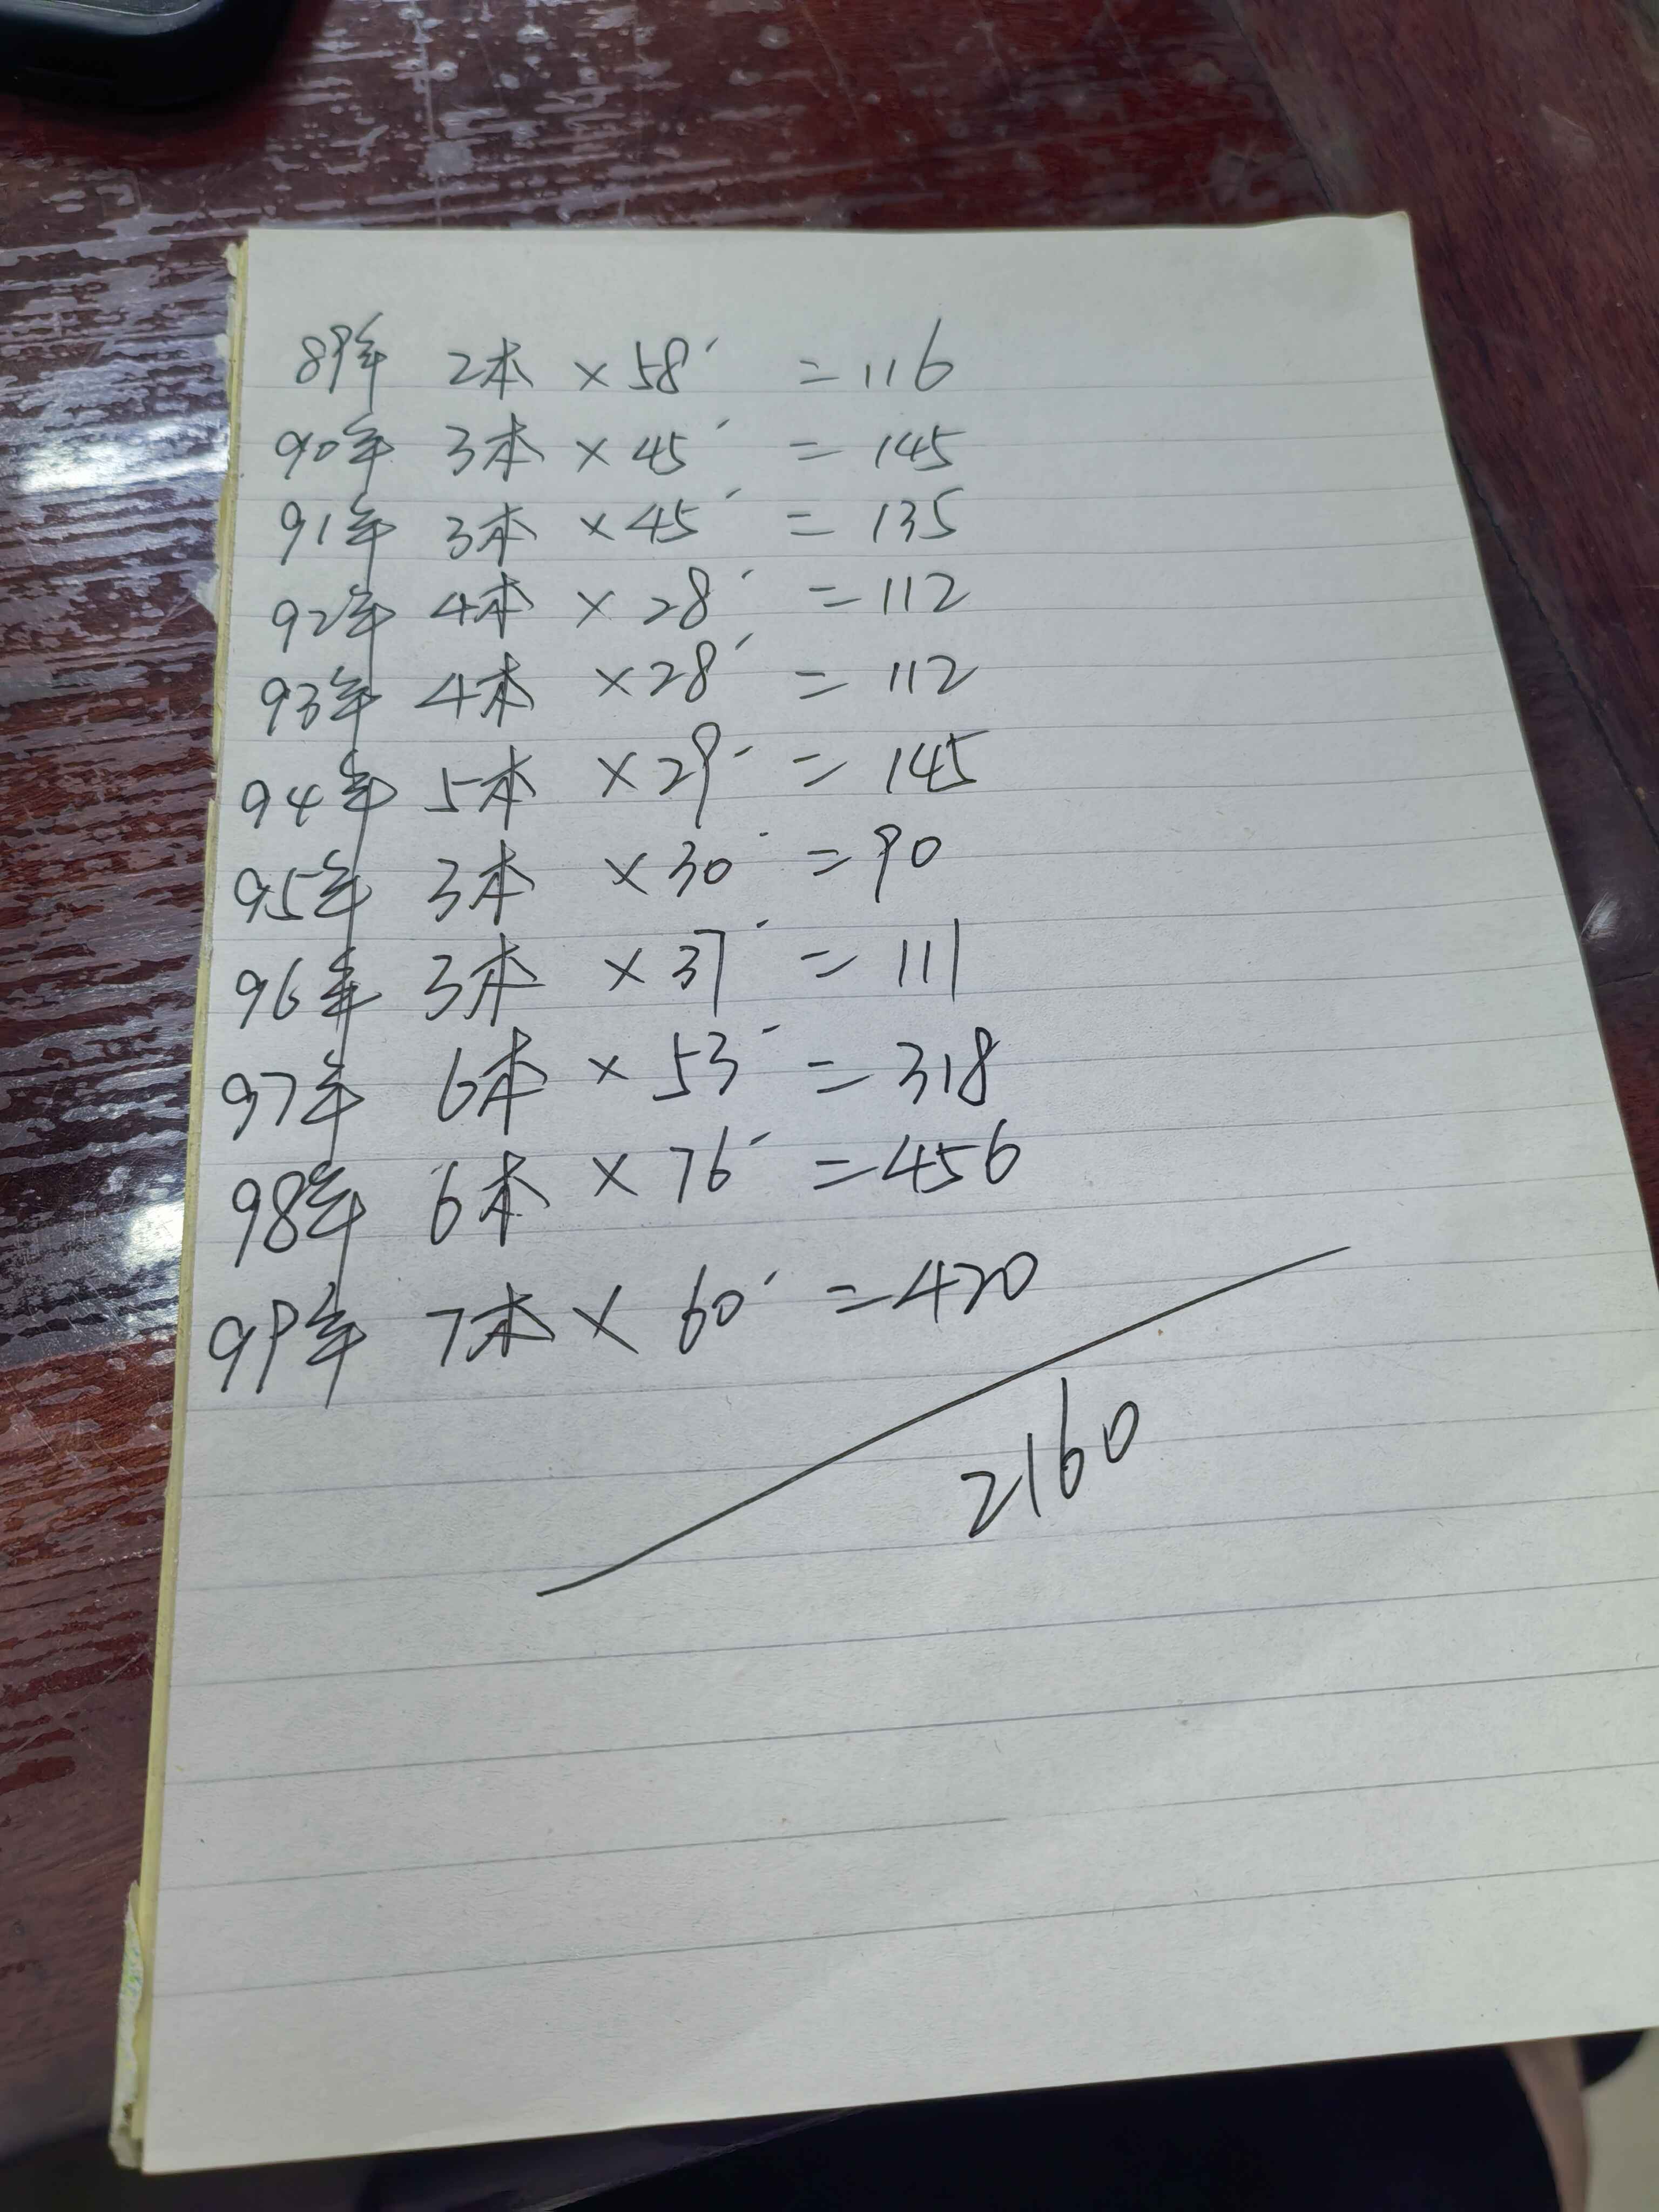 89年 2本 × 58 = 116
90年 3本 × 45 = 145
91年 3本 × 45 = 135
92年 4本 × 28 = 112
93年 4本 × 28 = 112
94年 5本 × 29 = 145
95年 3本 × 30 = 90
96年 3本 × 37 = 111
97年 6本 × 53 = 318
98年 6本 × 76 = 456
99年 7本 × 60 = 420
2160